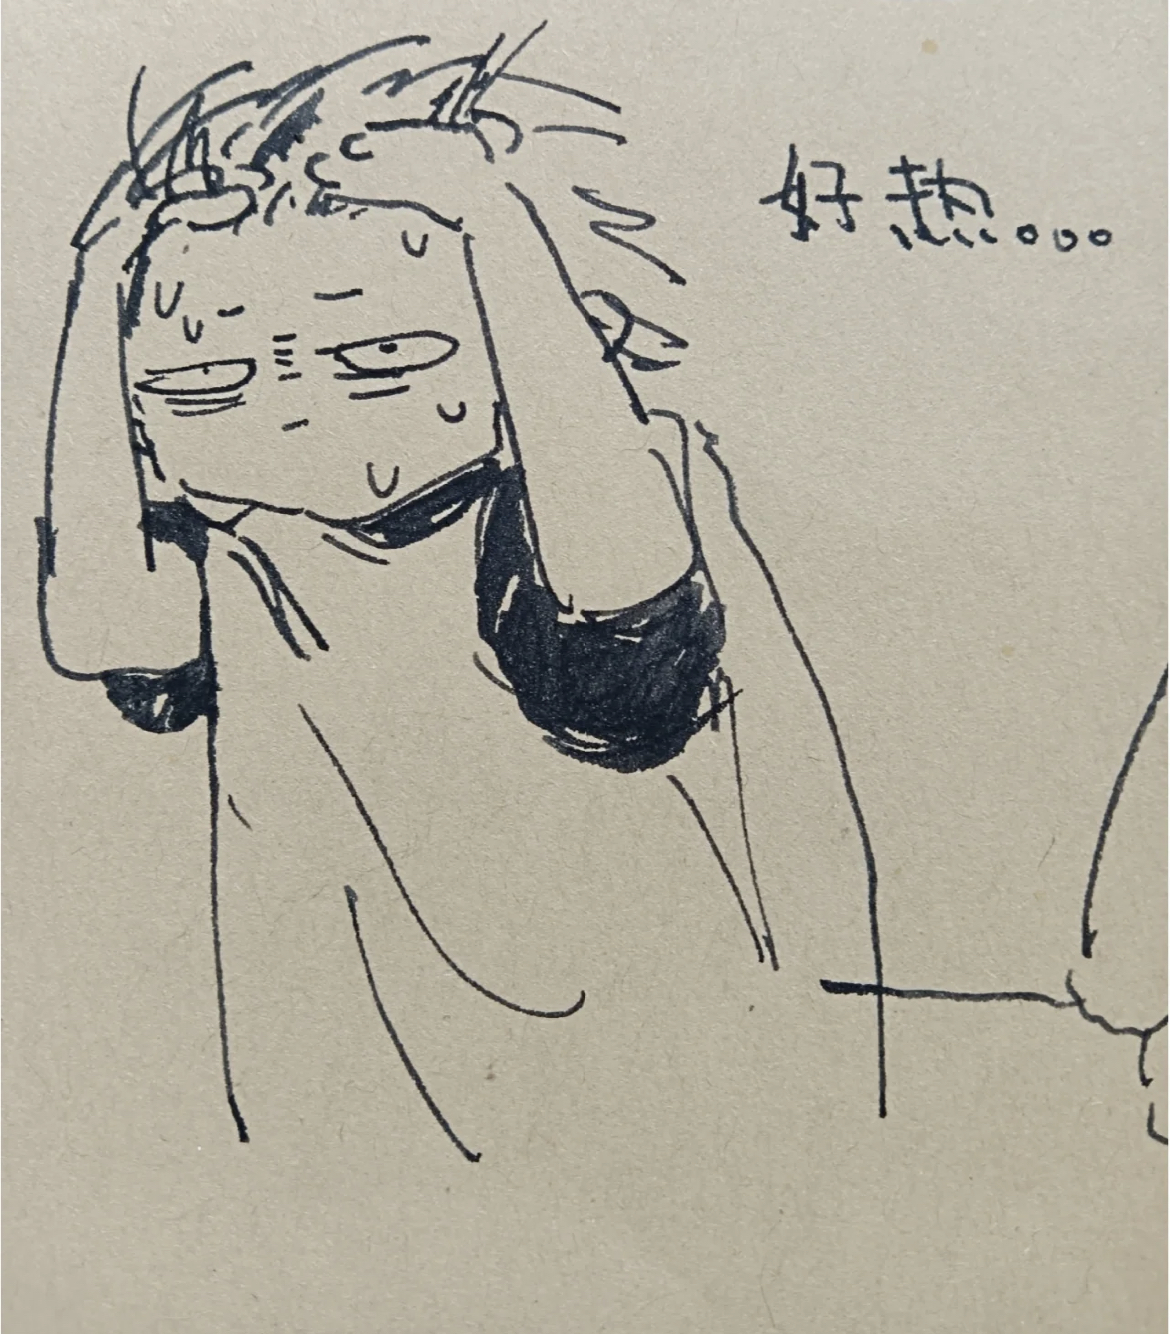 好热。。。